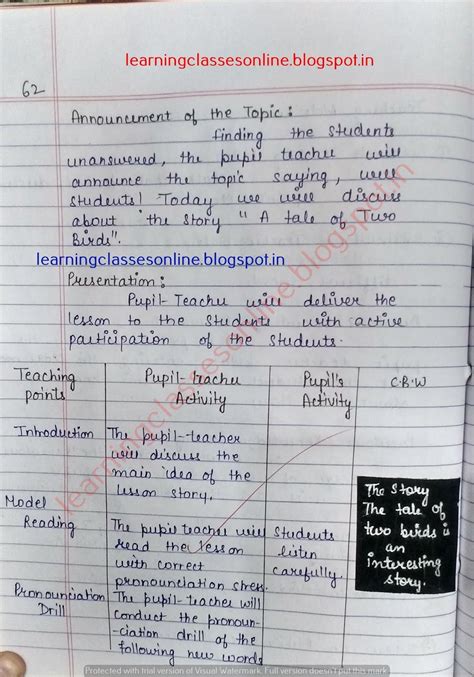 learningclassesonline.blogspot.in
62
Announcement of the Topic:
finding the students
unanswered, the pupil teacher will
announce the topic saying, well
students! Today we will discuss
about 'the story "A tale of Two
Birds".
learningclassesonline.blogspot.in
Presentation:
Pupil-Teacher will deliver the
lesson to the students with active
participation of the students.
Teaching points
Pupil-teacher Activity
Pupil's Activity
C.B.W
Introduction
The pupil-teacher
will discuss the
main idea of the
lesson story.
Model
Reading
The pupil teacher will
read the lesson
with correct
pronounciation stress.
Students
listen
carefully.
The story
The tale of
two birds is
an
interesting
story.
Pronounciation
Drill
The pupil-teacher will
conduct the pronoun-
-ciation drill of the
following new words
learningclassesonline.blogspot.in
Protected with trial version of Visual Watermark. Full version doesn't put this mark.